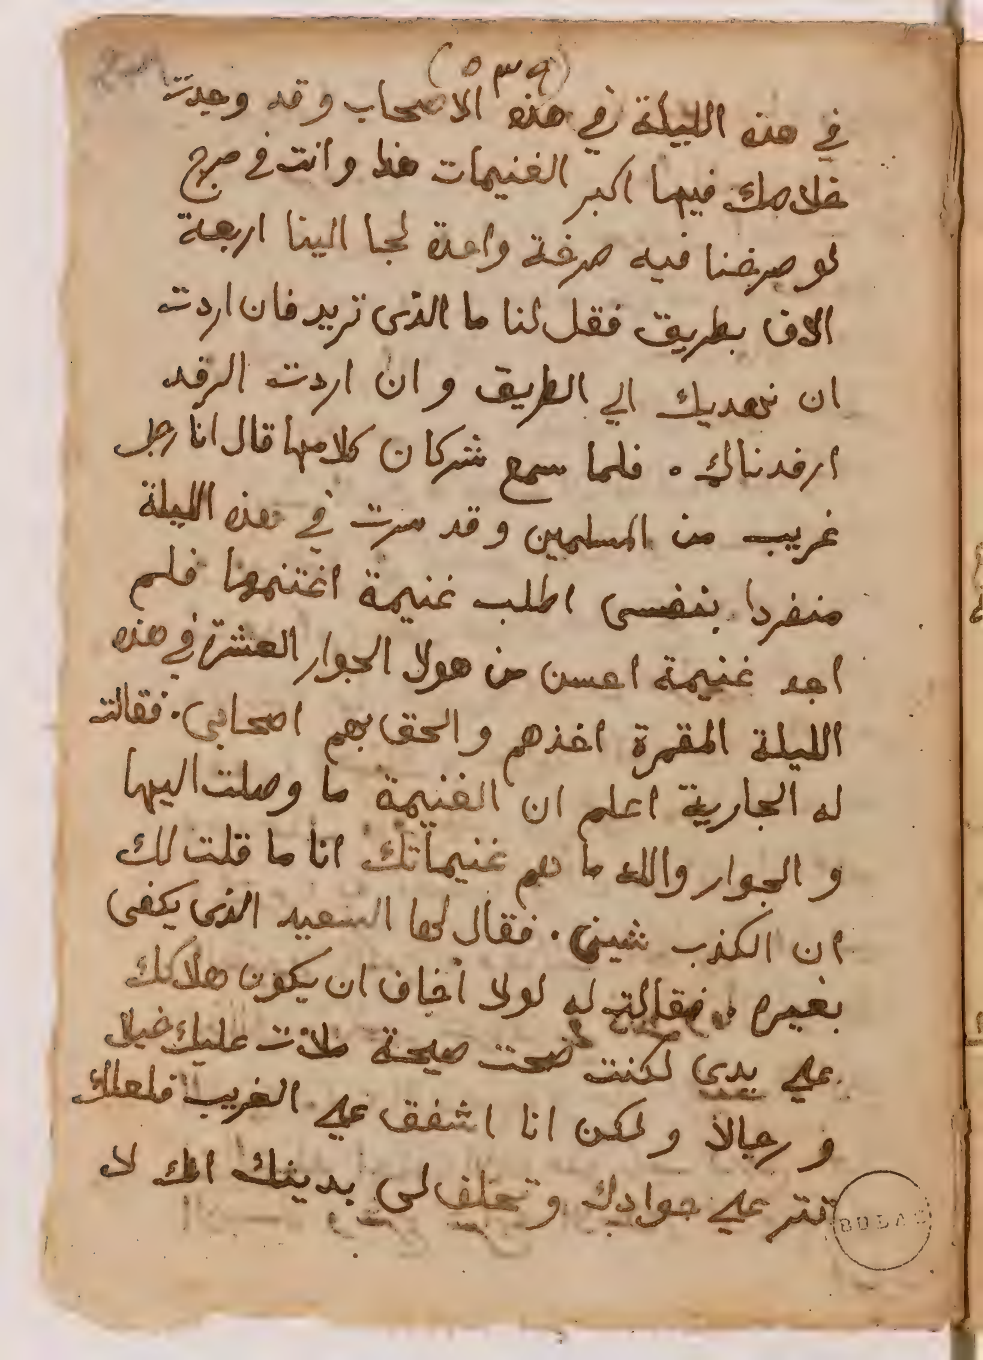 (٥٣٩)
في هذه الليلة في هذه الاصحاب وقد وجدت
خلاصك فيها اكبر الغنيمات هذا وانت في مرج
لو صرخنا فيه صرخة واحدة لجا الينا اربعة
الاف بطريق فقل لنا ما الذى تريد فان اردت
ان نهديك الي الطريق وان اردت الرفد
ارفدناك . فلما سمع شركان كلامها قال انا رجل
غريب من المسلمين وقد سرت في هذه الليلة
منفردا بنفسى اطلب غنيمة اغتنمها فلم
اجد غنيمة احسن من هولا الجوار العشرة في هذه
الليلة المقمرة اخذهم والحق بهم اصحابي . فقالت
له الجارية اعلم ان الغنيمة ما وصلت اليها
و الجوار والله ما هم غنيماتك انا ما قلت لك
ان الكذب شين . فقال لها السعيد الذى يكفى
بغيره . فقالت له لولا اخاف ان يكون هلاكك
علي يدى لكنت صحت صيحة ملات عليك خيلا
و رجالا ولكن انا اشفق علي الغريب فلعلك
تنتر علي جوادك وتحلف لى بدينك انك لا